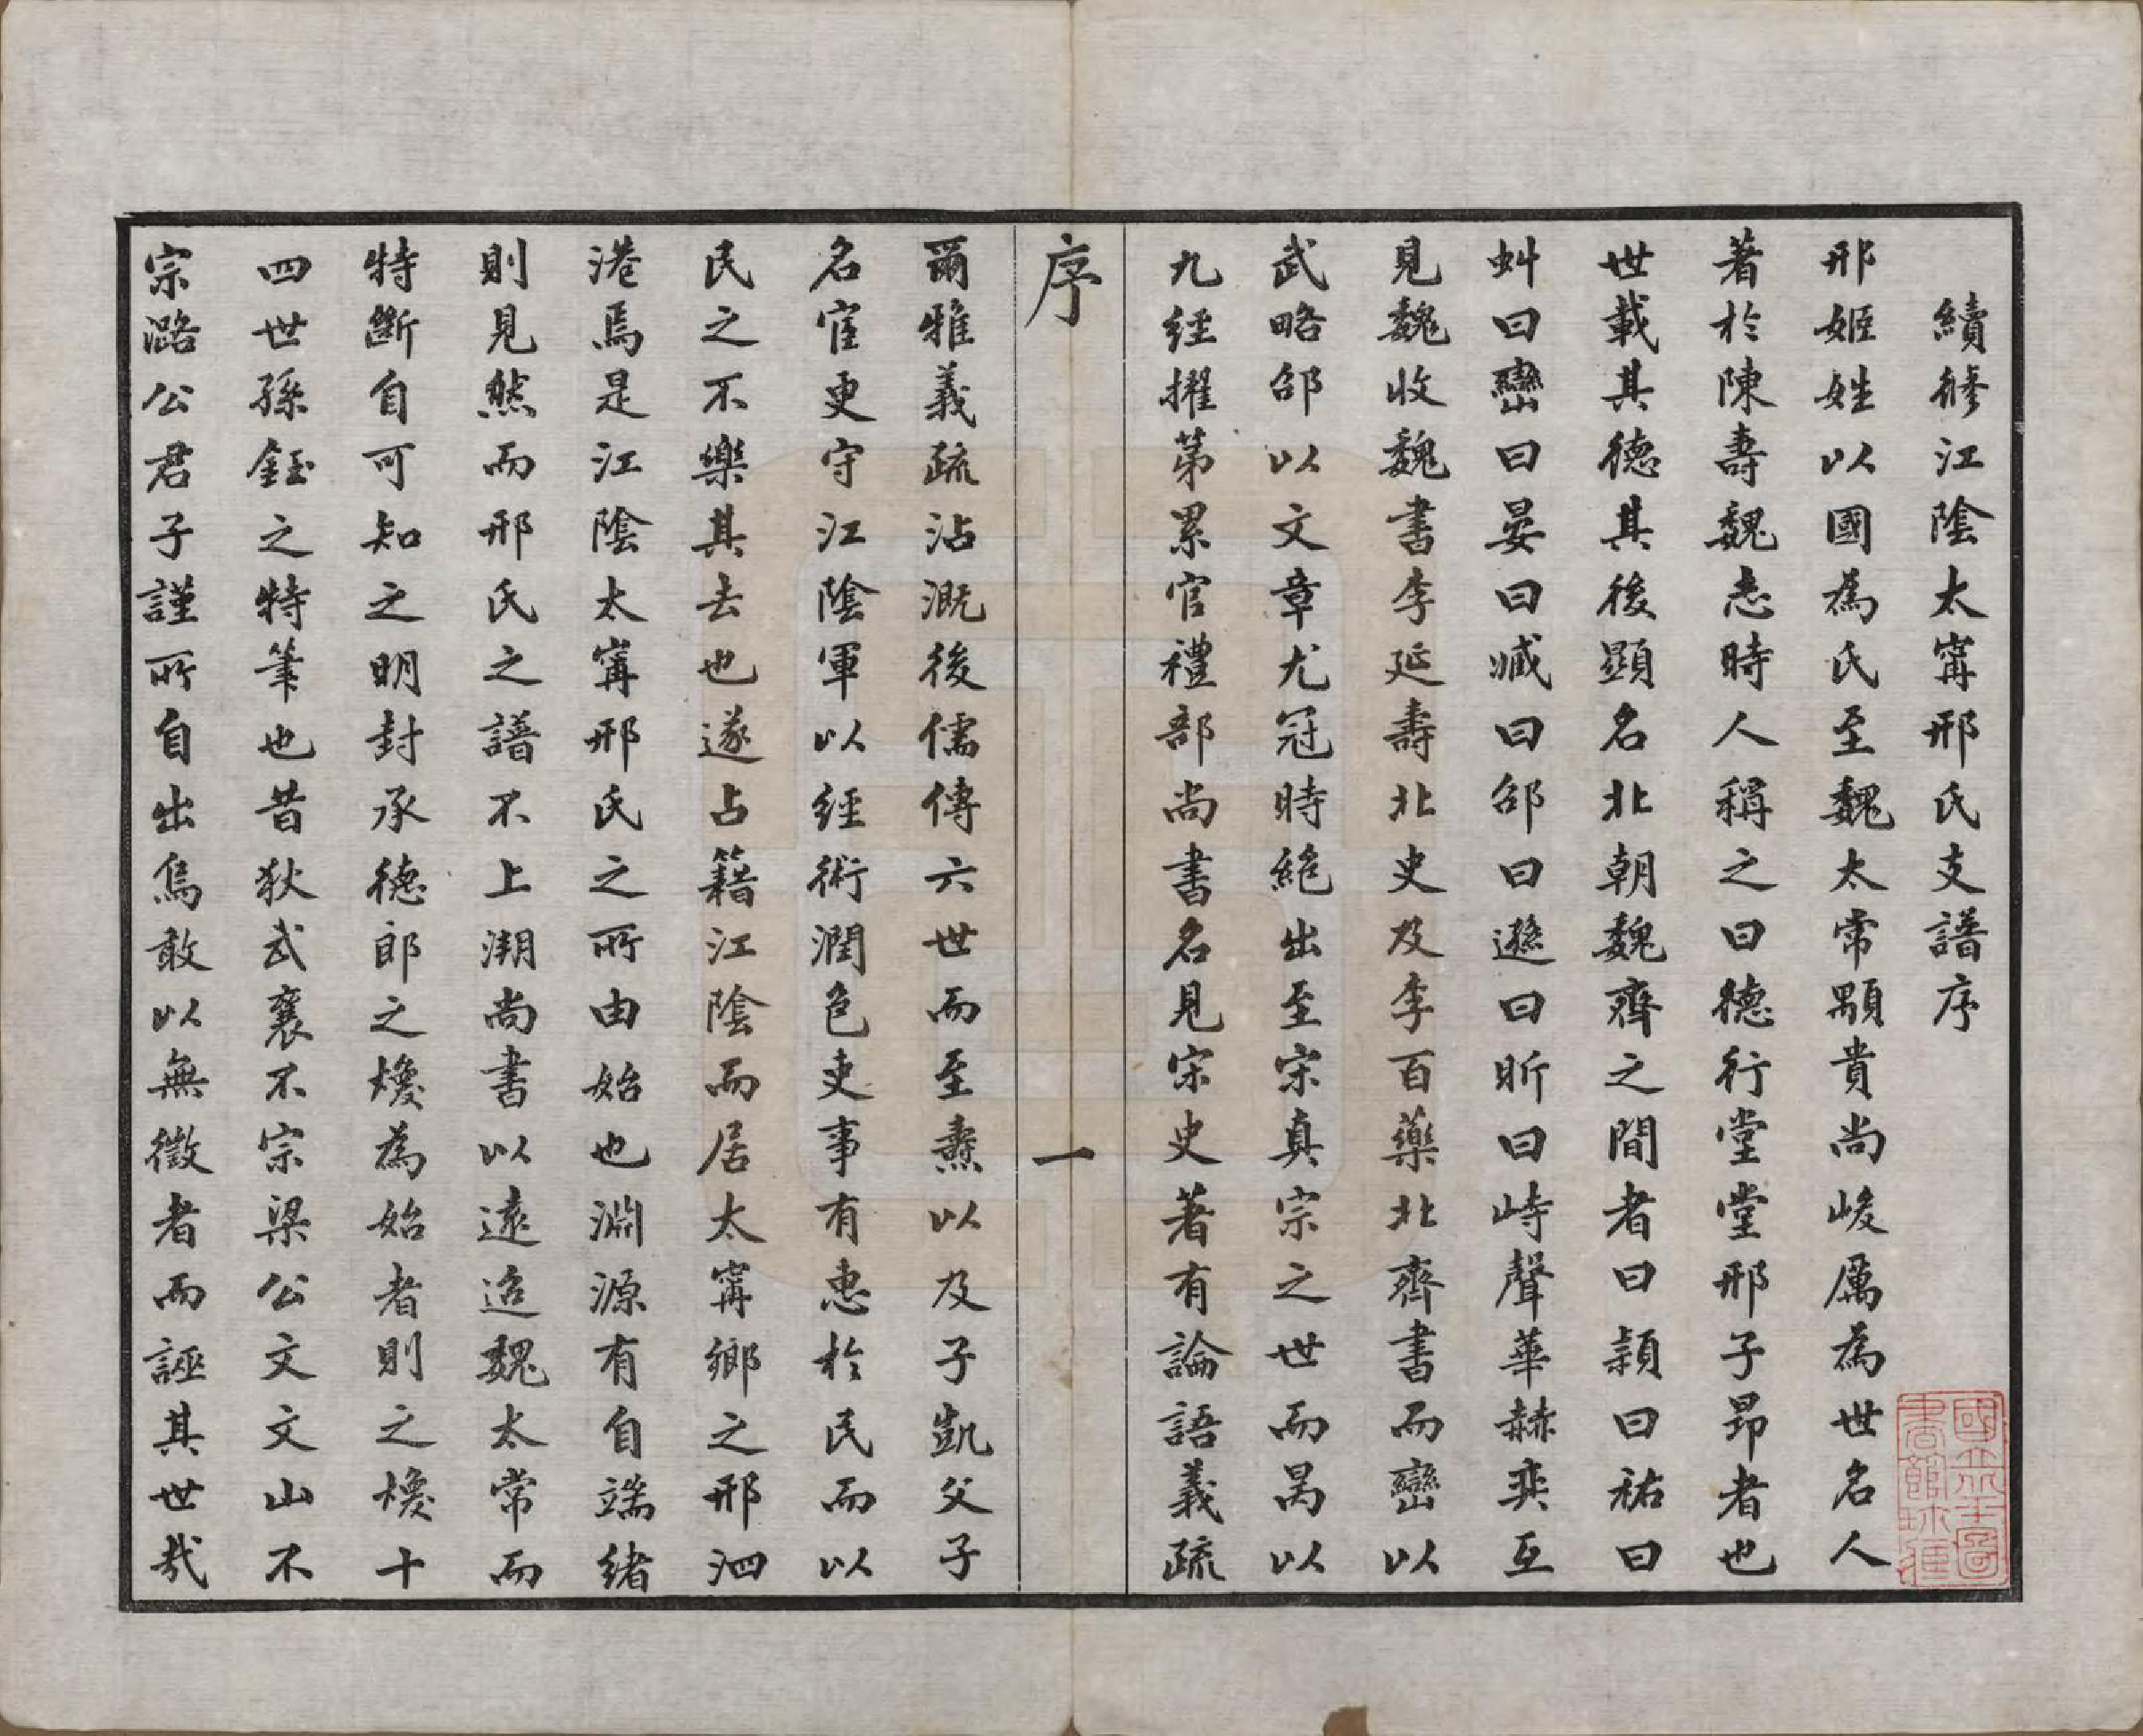 續修江陰太甯邢氏支譜序
邢姬姓以國為氏至魏太常顒貴尚峻厲為世名人
著於陳壽魏志時人稱之曰德行堂堂邢子昂者也
世載其德其後顯名北朝魏齊之間者曰穎曰祐曰
虯曰巒曰晏曰臧曰邵曰遜曰昕曰峙聲華赫奕互
見魏收魏書李延壽北史及李百藥北齊書而巒以
武略邵以文章尤冠時絶出至宋真宗之世而昺以
九經擢第累官禮部尚書名見宋史著有論語義疏
序
一
爾雅義疏沾溉後儒傳六世而至燾以及子凱父子
名宦更守江陰軍以經術潤色吏事有惠於民而以
民之不樂其去也遂占籍江陰而居太甯鄉之邢泗
港焉是江陰太甯邢氏之所由始也淵源有自端緒
則見然而邢氏之譜不上溯尚書以遠追魏太常而
特斷自可知之明封承德郎之㷟為始者則之㷟十
四世孫鈺之特筆也昔狄武襄不宗梁公文文山不
宗潞公君子謹所自出焉敢以無徵者而誣其世哉
國立北平圖
書館珍藏